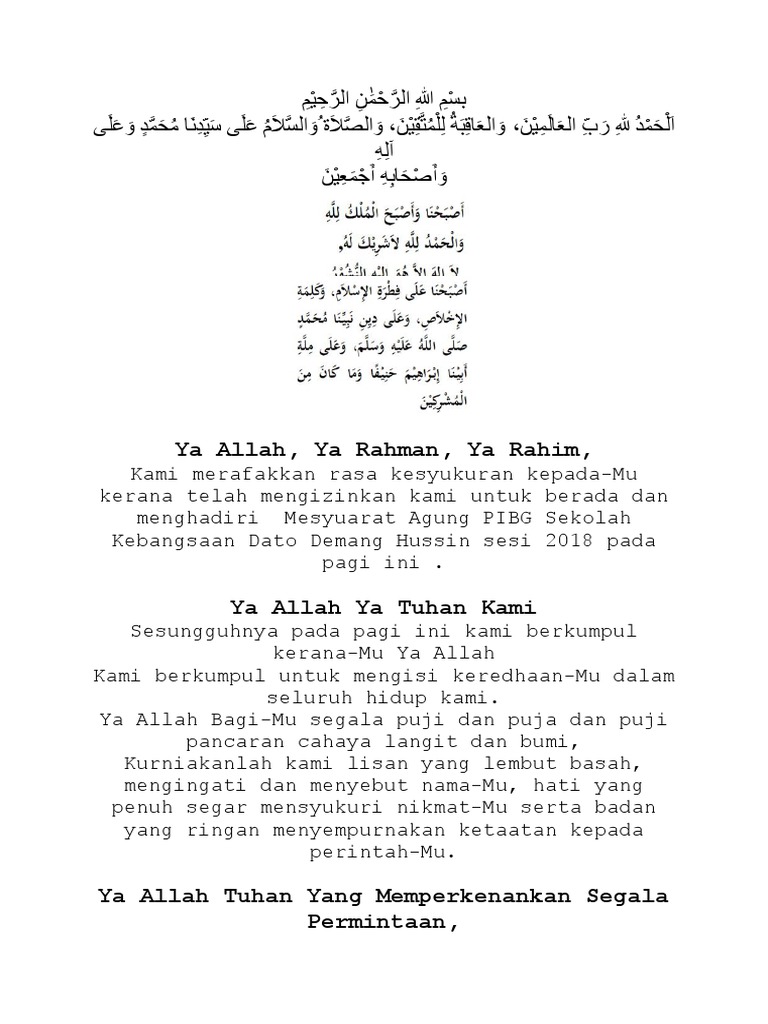 بِسْمِ اللهِ الرَّحْمٰنِ الرَّحِيْمِ
اَلْحَمْدُ للهِ رَبِّ العَالَمِيْنَ، وَالعَاقِبَةُ لِلْمُتَّقِيْنَ، وَالصَّلَاةُ وَالسَّلَامُ عَلَى سَيِّدِنَا مُحَمَّدٍ وَعَلَى
آلِهِ
وَأَصْحَابِهِ أَجْمَعِيْنَ
أَصْبَحْنَا وَأَصْبَحَ الْمُلْكُ لِلَّهِ
وَالْحَمْدُ لِلَّهِ لاَشَرِيْكَ لَهُ,
لاَ إِلهَ إِلاَّ هُوَ إِلَيْهِ النُّشُوْرُ
أَصْبَحْنَا عَلَى فِطْرَةِ الإِسْلاَمِ، وَكَلِمَةِ
الإِخْلاَصِ، وَعَلَى دِيْنِ نَبِيِّنَا مُحَمَّدٍ
صَلَّى اللَّهُ عَلَيْهِ وَسَلَّمَ، وَعَلَى مِلَّةِ
أَبِيْنَا إِبْرَاهِيْمَ حَنِيْفًا وَمَا كَانَ مِنَ
الْمُشْرِكِيْنَ
Ya Allah, Ya Rahman, Ya Rahim,
Kami merafakkan rasa kesyukuran kepada-Mu
kerana telah mengizinkan kami untuk berada dan
menghadiri Mesyuarat Agung PIBG Sekolah
Kebangsaan Dato Demang Hussin sesi 2018 pada
pagi ini .
Ya Allah Ya Tuhan Kami
Sesungguhnya pada pagi ini kami berkumpul
kerana-Mu Ya Allah
Kami berkumpul untuk mengisi keredhaan-Mu dalam
seluruh hidup kami.
Ya Allah Bagi-Mu segala puji dan puja dan puji
pancaran cahaya langit dan bumi,
Kurniakanlah kami lisan yang lembut basah,
mengingati dan menyebut nama-Mu, hati yang
penuh segar mensyukuri nikmat-Mu serta badan
yang ringan menyempurnakan ketaatan kepada
perintah-Mu.
Ya Allah Tuhan Yang Memperkenankan Segala
Permintaan,